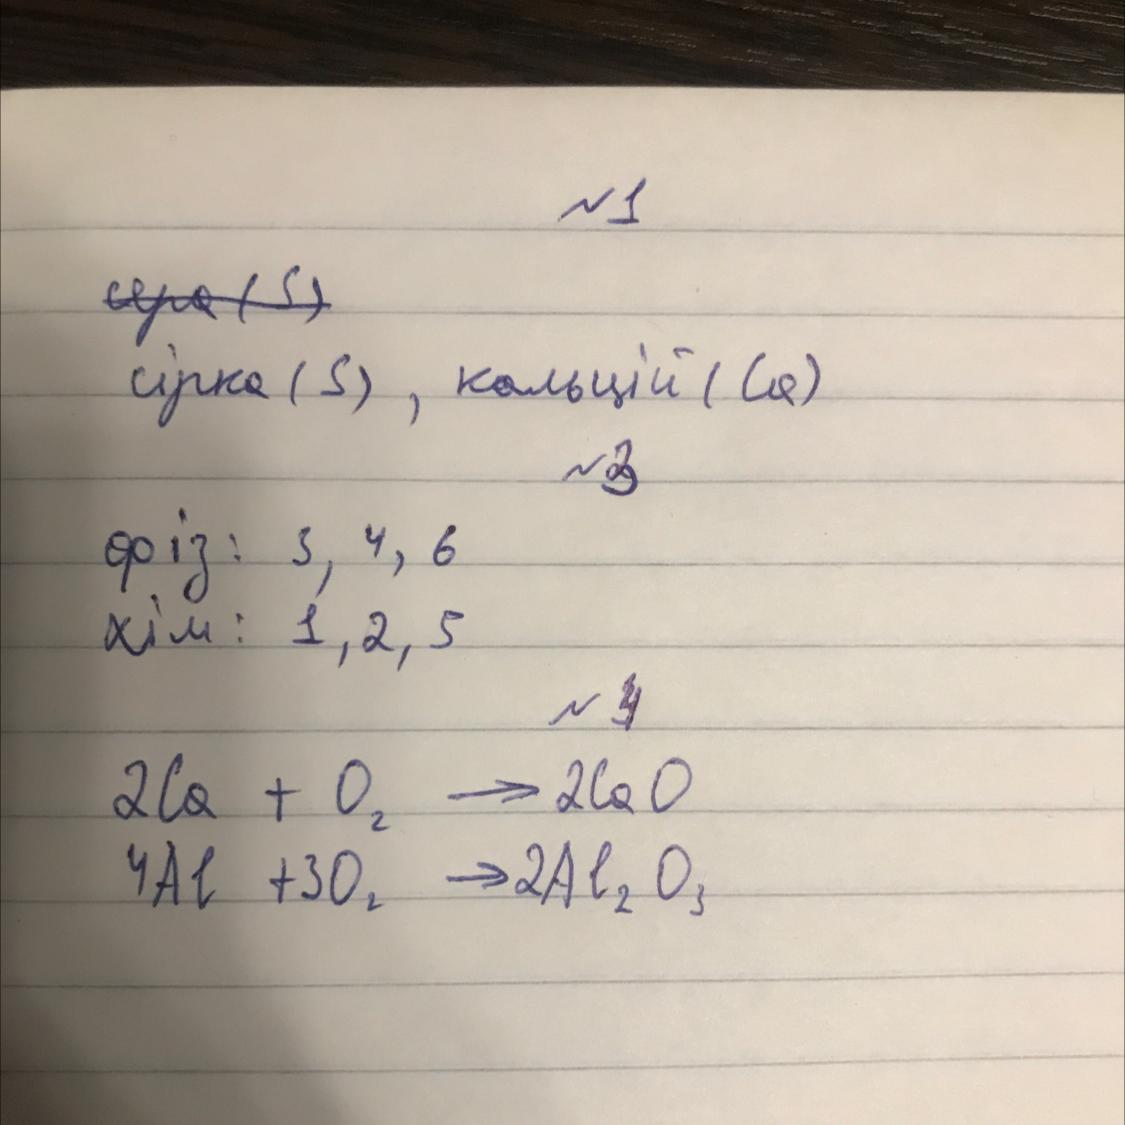 №1
сера (S)
сірка (S), кальцій (Ca)
№3
фіз: 3, 4, 6
хім: 1, 2, 5
№4
2Ca + O₂ → 2CaO
4Al +3O₂ → 2Al₂O₃